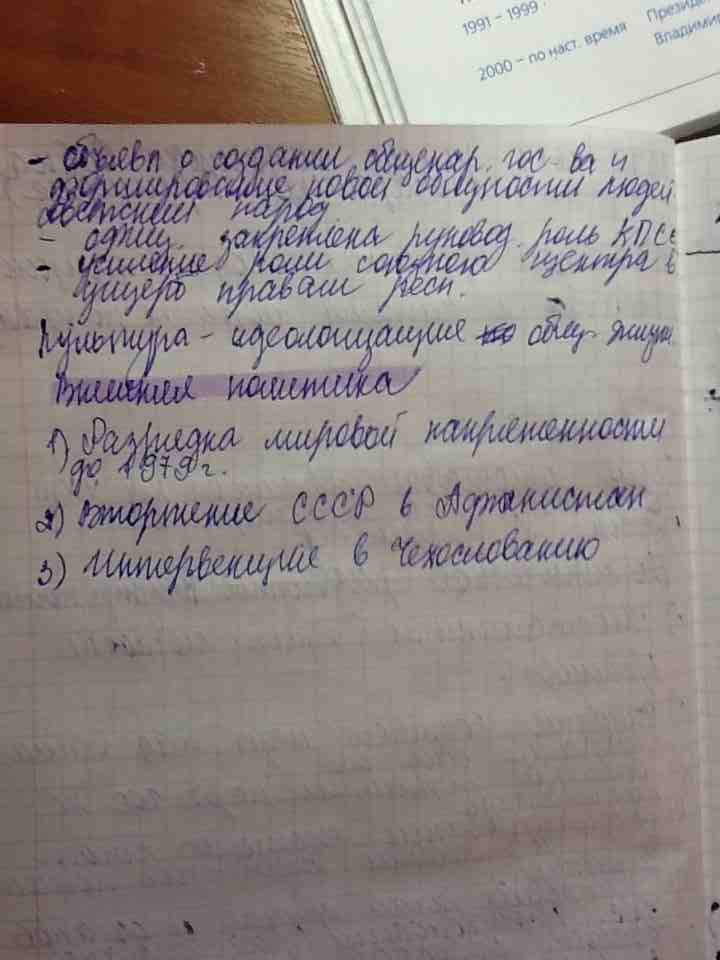 1991 – 1999
Президе
2000 – по наст. время
Владими
- объявл о создании общенар. гос-ва и
формирование новой общности людей
советский народ
- офиц. закреплена руковод. роль КПСС
- усиление роли союзного центра в
ущерб правам респ.
Культура - идеологизация общ. жизни
Внешняя политика
1) Разрядка мировой напряженности
до 1979 г.
2) Вторжение СССР в Афганистан
3) Интервенция в Чехословакию